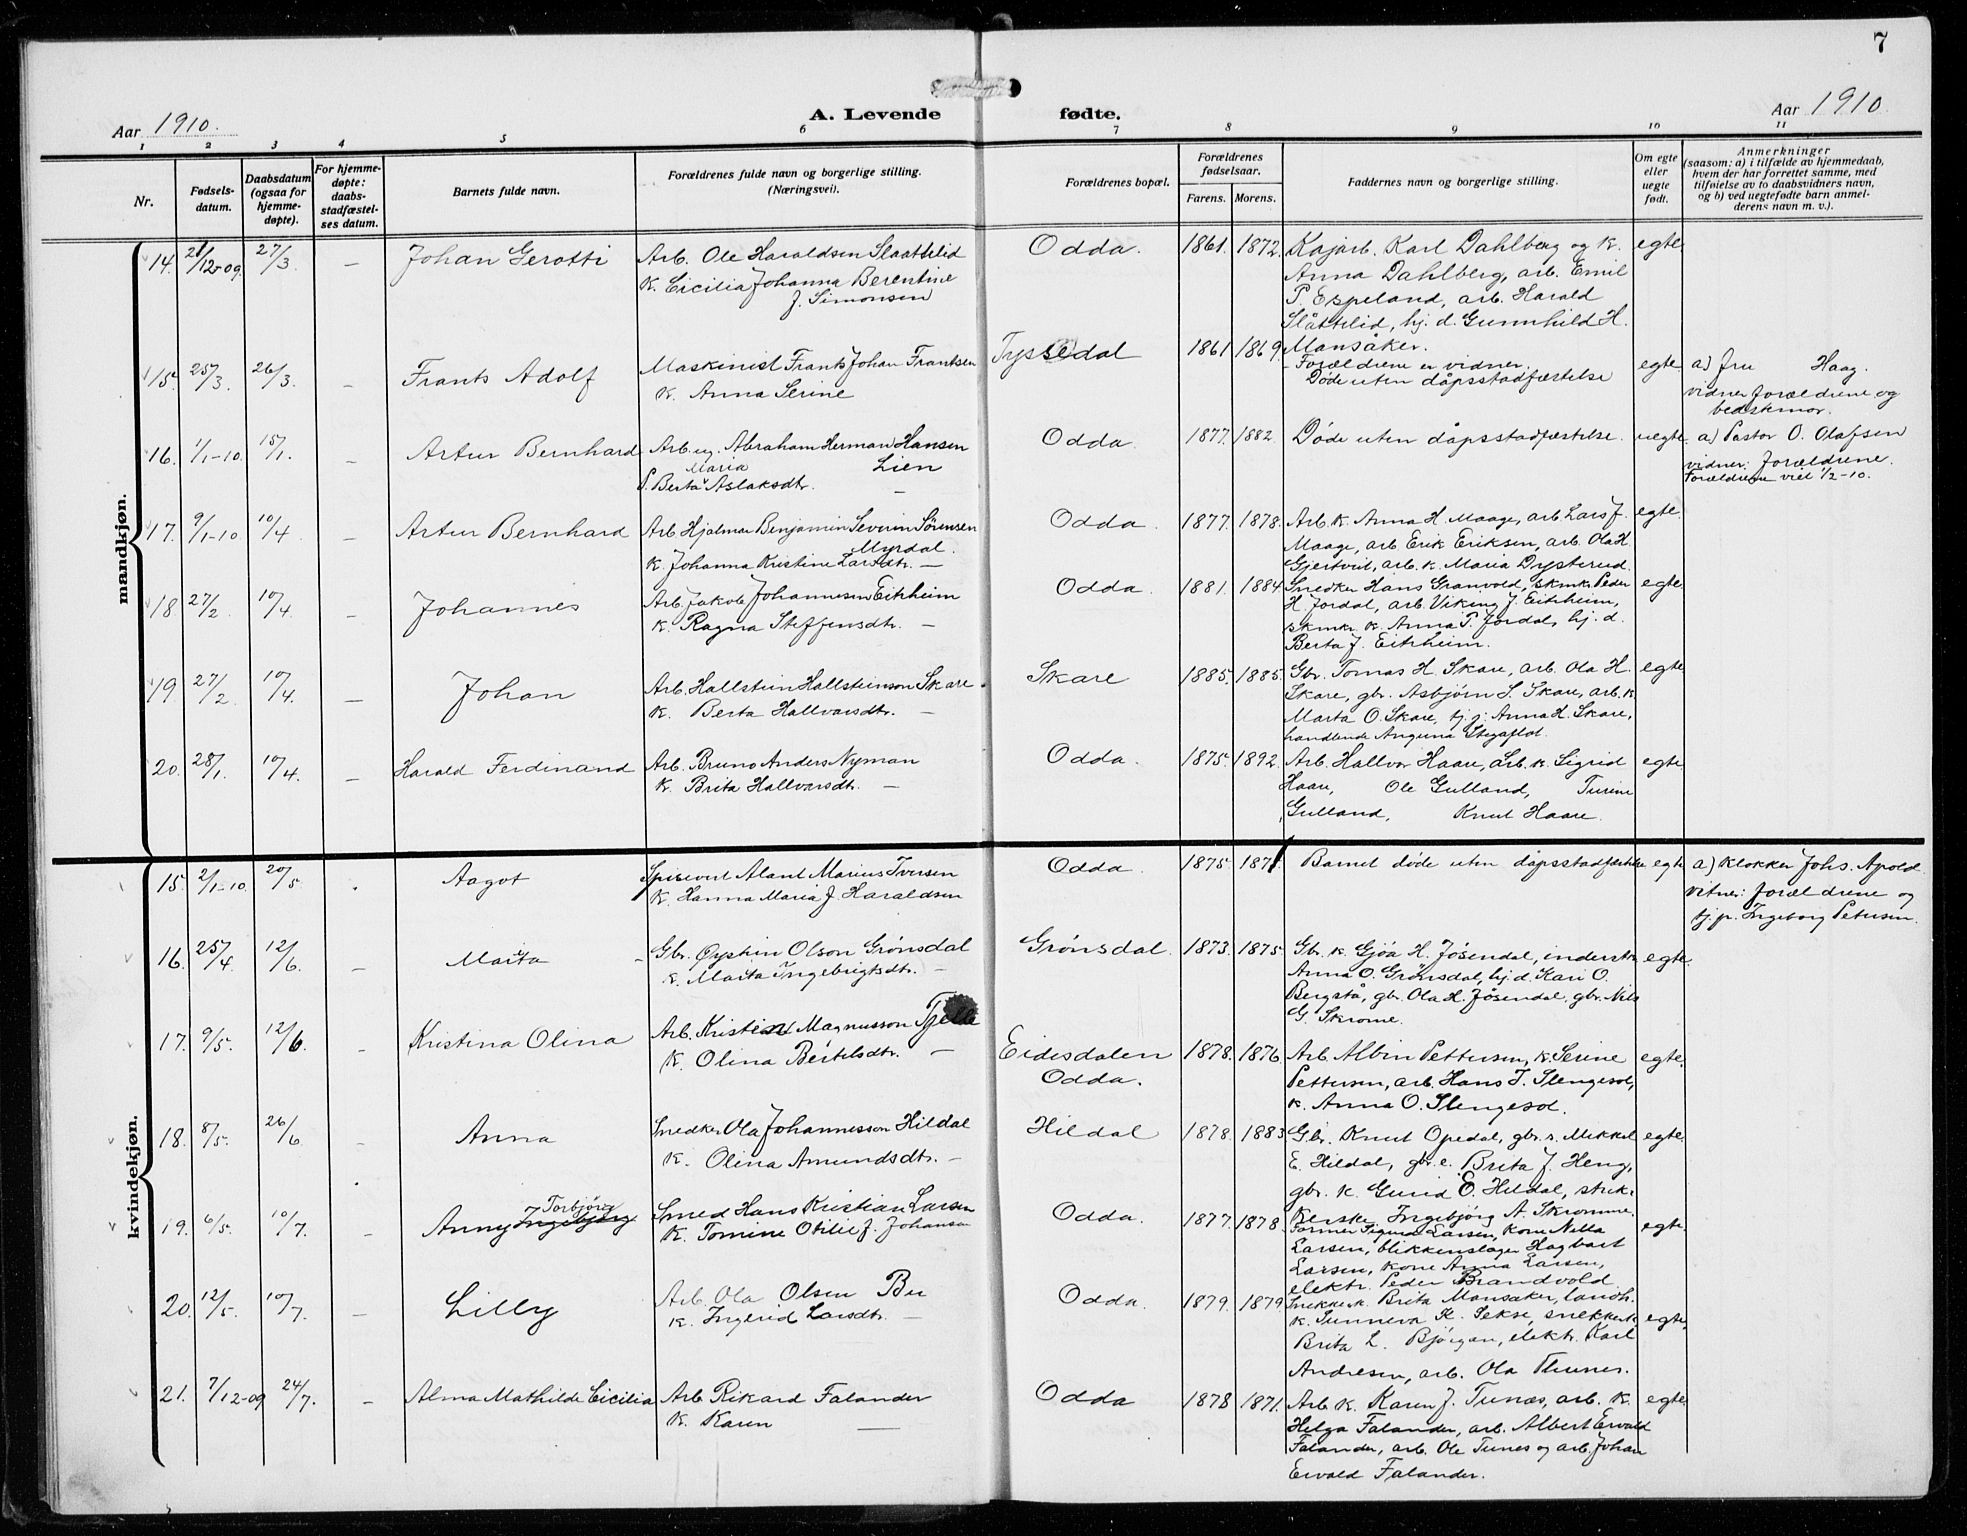 7
Aar 1910.
A. Levende fødte.
Aar 1910
1 2 3 4 5 6 7 8 9 10 11
Nr.
Fødsels-
datum.
Daabsdatum
(ogsaa for
hjemme-
døpte).
For hjemme-
døpte:
daabs-
stadfæstel-
ses datum.
Barnets fulde navn.
Forældrenes fulde navn og borgerlige stilling.
(Næringsvei).
Forældrenes bopæl.
Forældrenes
fødselsaar.
Farens. Morens.
Faddernes navn og borgerlige stilling.
Om egte
eller
uegte
født.
Anmerkninger
(saasom: a) i tilfælde av hjemmedaab,
hvem der har forrettet samme, med
tilføielse av to daabsvidners navn,
og b) ved uegtefødte barn anmel-
derens navn m. v.).
mandkjøn.
14. 21/12-09. 27/3. — Johan Gerotti
Arb. Ole Haraldsen Slaattelid
K. Cicilia Johanna Berentine
J. Simonsen
Odda. 1861 1872.
Kajarb. Karl Dahlberg og K.
Anna Dahlberg, arb. Emil
P. Espeland, arb. Harald
Slåttelid, hj. d. Gunnhild H.
Mansåker.
egte
15. 25/3. 26/3. — Frants Adolf
Maskinist Frants Johan Frantsen
K. Anna Serine
Tyssedal 1861 1869.
Forældrene er vidner.
Døde uten dåpsstadfæstelse
egte
a) Fru Haag.
vidner forældrene og
bedstmor.
16. 1/1-10. 15/1. — Artur Bernhard
Arb. ug. Abraham Herman Hansen
Lien
P. Berta Maria Aslaksdtr. —
Odda 1877. 1882.
Døde uten dåpsstadfæstelse.
uegte
a) Pastor O. Olafsen
vidner: Forældrene.
Forældrene viet 1/2-10.
17. 9/1-10 10/4. — Artur Bernhard
Arb. Hjalmar Benjamin Severin Sørensen
Myrdal.
K. Johanna Kristine Larsdtr. —
Odda. 1877. 1878.
Arb. K. Anna H. Maage, arb. Lars J.
Maage, arb. Erik Eriksen, arb. Ola H.
Gjertveit, arb. K. Maria Dysterud.
egte.
18 27/2. 10/4. — Johannes
Arb. Jakob Johannesen Eitrheim
K. Ragna Steffensdtr. —
Odda. 1881. 1884.
Snedker Hans Granvold, skmk. Peder
H. Jordal, arb. Viking J. Eitrheim,
skmk. K. Anna P. Jordal, hj. d.
Berta J. Eitrheim.
egte.
19 27/2. 10/4. — Johan
Arb. Hallstein Hallsteinson Skare
K. Berta Hallvarsdtr. —
Skare 1885. 1885.
Gbr. Tomas H. Skare, arb. Ola H.
Skare, gbr. Asbjørn S. Skare, arb. K.
Marta O. Skare, tj. pj. Anna H. Skare,
handlende Anguna Stegaflot.
egte.
20. 28/1. 10/4. — Harald Ferdinand
Arb. Bruno Anders Nyman
K. Brita Hallvarsdtr. —
Odda. 1875. 1892.
Arb. Hallvor Haare, arb. K. Sigrid
Haare, Ole Gulland, Turine
Gulland, Knut Haare.
egte
kvindekjøn.
15. 2/1-10. 20/5. Aagot
Spisevert Alant Marius Iversen
K. Hanna Maria J. Haraldsen
Odda. 1875. 1871.
Barnet døde uten dåpsstadfæstelse
egte
a) Klokker Johs. Apold
vitner: forældrene og
tj. p. Ingeborg Petersen.
16. 25/4 12/6. — Marta
Gbr. Øystein Olson Grønsdal
K. Marta Ingebrigtsdtr. —
Grønsdal. 1873. 1875.
Gbr. K. Gjøa H. Jøsendal, inderstk.
Anna O. Grønsdal, hj. d. Kari O.
Bergstå, gbr. Ola H. Jøsendal, gbr. Nils
G. Skrome.
egte.
17. 9/5. 12/6. — Kristina Olina
Arb. Kristen Magnusson
K. Olina Bertelsdtr. —
Eidesdalen
Odda.
1878. 1876
Arb. Albin Pettersen, K. Serine
Pettersen, arb. Hans T. Slengesol,
K. Anna O. Slengesol.
egte.
18. 8/5. 26/6 — Anna
Snedker Ola Johannesson Hildal
K. Olina Amundsdtr. —
Hildal 1878. 1883
Gbr. Knut Opedal, gbr. s. Mikkel
E. Hildal, gbr. e. Brita J. Heng,
gbr. K. Gurid E. Hildal, strik-
kerske Ingebjørg A. Skromme.
egte.
19. 6/5. 10/7. — Anny Ingebjørg Torbjørg
Smed Hans Kristian Larsen
K. Tomine Otilie J. Johansen
Odda. 1877. 1878
Former Sigurd Larsen, Kone Nilla
Larsen, blikkenslager Hagbart
Larsen, kone Anna Larsen,
elektr. Peder Brandvold
egte.
20. 12/5. 10/7. — Lilly
Arb. Ola Olsen Bu
K. Ingerid Larsdtr. —
Odda. 1879. 1879.
Snekke K. Brita Mansåker, landh.
K. Sunneva K. Sekse, snekker K.
Brita L. Bjørgan, elektr. Karl
Andresen, arb. Ola Thunes.
egte.
21. 7/12-09 24/7. — Alma Mathilde Cicilia
Arb. Rikard Falander
K. Karen —
Odda 1878 1871.
Arb. K. Karen J. Tunæs, arb. K.
Helga Falander, arb. Albert Ewald
Falander, arb. Ole Tunes og arb. Johan
Ewald Falander.
egte.